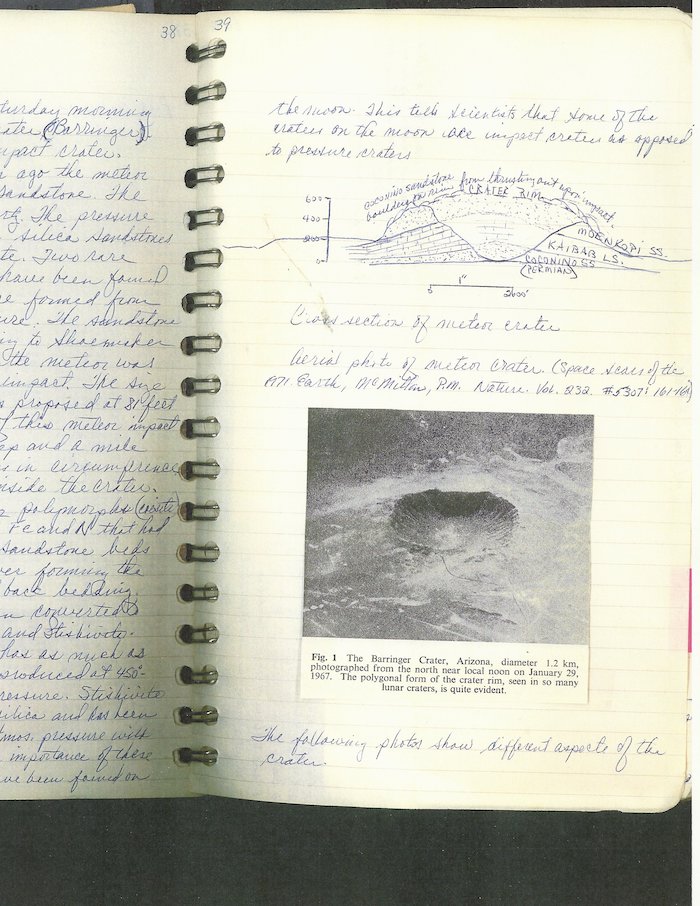 38
turday morning
ater (Barringer)
mpact crater.
n ago the meteor
sandstone. The
The pressure
silica sandstones
te. Two rare
have been found
ce formed from
ure. The sandstone
ng to Shoemaker
the meteor was
impact. The size
s proposed at 81 feet
f this meteor impact
ep and a mile
s in circumference
nside the crater.
polymorphs (coesite
Fe and N that had
sandstone beds
ver forming the
back bedding.
n converted
and Stishivite.
has as much as
produced at 450°-
ressure. Stishivite
silica and has been
tmos. pressure with
importance of these
ve been found on
39
the moon. This tells scientists that some of the
craters on the moon are impact craters as opposed
to pressure craters
COCONINO SANDSTONE from thrusting out upon impact.
boulders on rim
CRATER RIM
600
400
200
0
MOENKOPI SS.
KAIBAB LS.
COCONINO SS
(PERMIAN)
1"
0
Cross section of meteor crater
Aerial photo of meteor crater. (Space scars of the
Earth, McMillin, P.M. Nature. Vol. 232. #5307:
Fig. 1 The Barringer Crater, Arizona, diameter 1.2 km,
photographed from the north near local noon on January 29,
1967. The polygonal form of the crater rim, seen in so many
lunar craters, is quite evident.
The following photos show different aspects of the
crater.